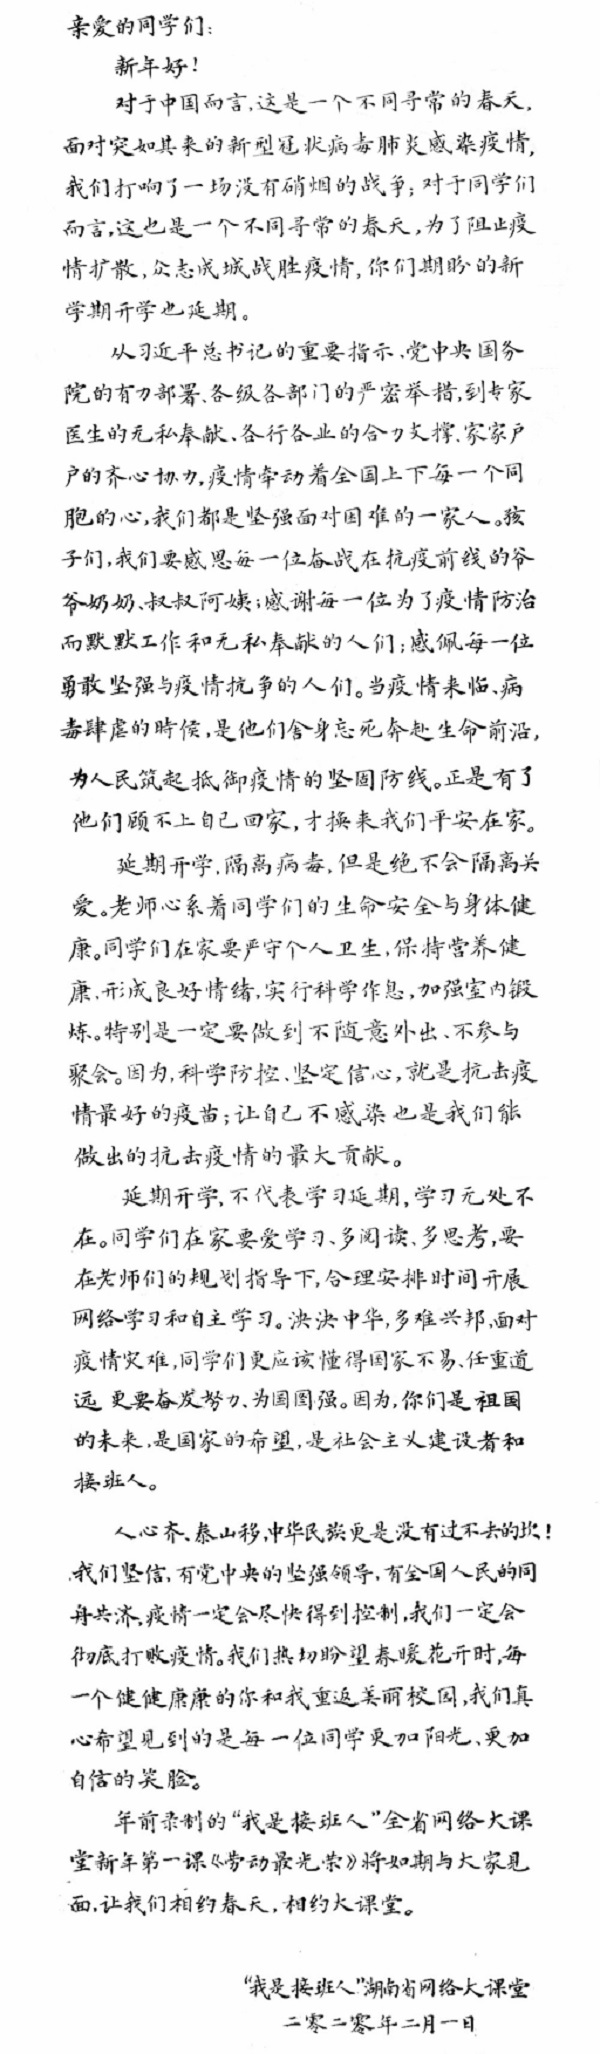 亲爱的同学们：
新年好！
对于中国而言，这是一个不同寻常的春天，
面对突如其来的新型冠状病毒肺炎感染疫情，
我们打响了一场没有硝烟的战争；对于同学们
而言，这也是一个不同寻常的春天，为了阻止疫
情扩散，众志成城战胜疫情，你们期盼的新
学期开学也延期。
从习近平总书记的重要指示、党中央国务
院的有力部署、各级各部门的严密举措，到专家
医生的无私奉献、各行各业的合力支撑、家家户
户的齐心协力，疫情牵动着全国上下每一个同
胞的心，我们都是坚强面对困难的一家人。孩
子们，我们要感恩每一位奋战在抗疫前线的爷
爷奶奶、叔叔阿姨；感谢每一位为了疫情防治
而默默工作和无私奉献的人们；感佩每一位
勇敢坚强与疫情抗争的人们。当疫情来临、病
毒肆虐的時候，是他们舍身忘死奔赴生命前沿，
为人民筑起抵御疫情的坚固防线。正是有了
他们顾不上自己回家，才换来我们平安在家。
延期开学，隔离病毒，但是绝不会隔离关
爱。老师心系着同学们的生命安全与身体健
康。同学们在家要严守个人卫生，保持营养健
康，形成良好情绪，实行科学作息，加强室内锻
炼。特别是一定要做到不随意外出、不参与
聚会。因为，科学防控、坚定信心，就是抗击疫
情最好的疫苗；让自己不感染也是我们能
做出的抗击疫情的最大贡献。
延期开学，不代表学习延期，学习无处不
在。同学们在家要爱学习、多阅读、多思考，要
在老师们的规划指导下，合理安排时间开展
网络学习和自主学习。泱泱中华，多难兴邦，面对
疫情灾难，同学们更应该懂得国家不易、任重道
远 更要奋发努力、为国图强。因为，你们是祖国
的未来，是国家的希望，是社会主义建设者和
接班人。
人心齐、泰山移，中华民族更是没有过不去的坎！
我们坚信，有党中央的坚强领导，有全国人民的同
舟共济，疫情一定会尽快得到控制，我们一定会
彻底打败疫情。我们热切盼望春暖花开时，每
一个健健康康的你和我重返美丽校园，我们真
心希望见到的是每一位同学更加阳光、更加
自信的笑脸。
年前录制的“我是接班人”全省网络大课
堂新年第一课《劳动最光荣》将如期与大家见
面，让我们相约春天，相约大课堂。
“我是接班人”湖南省网络大课堂
二零二零年二月一日